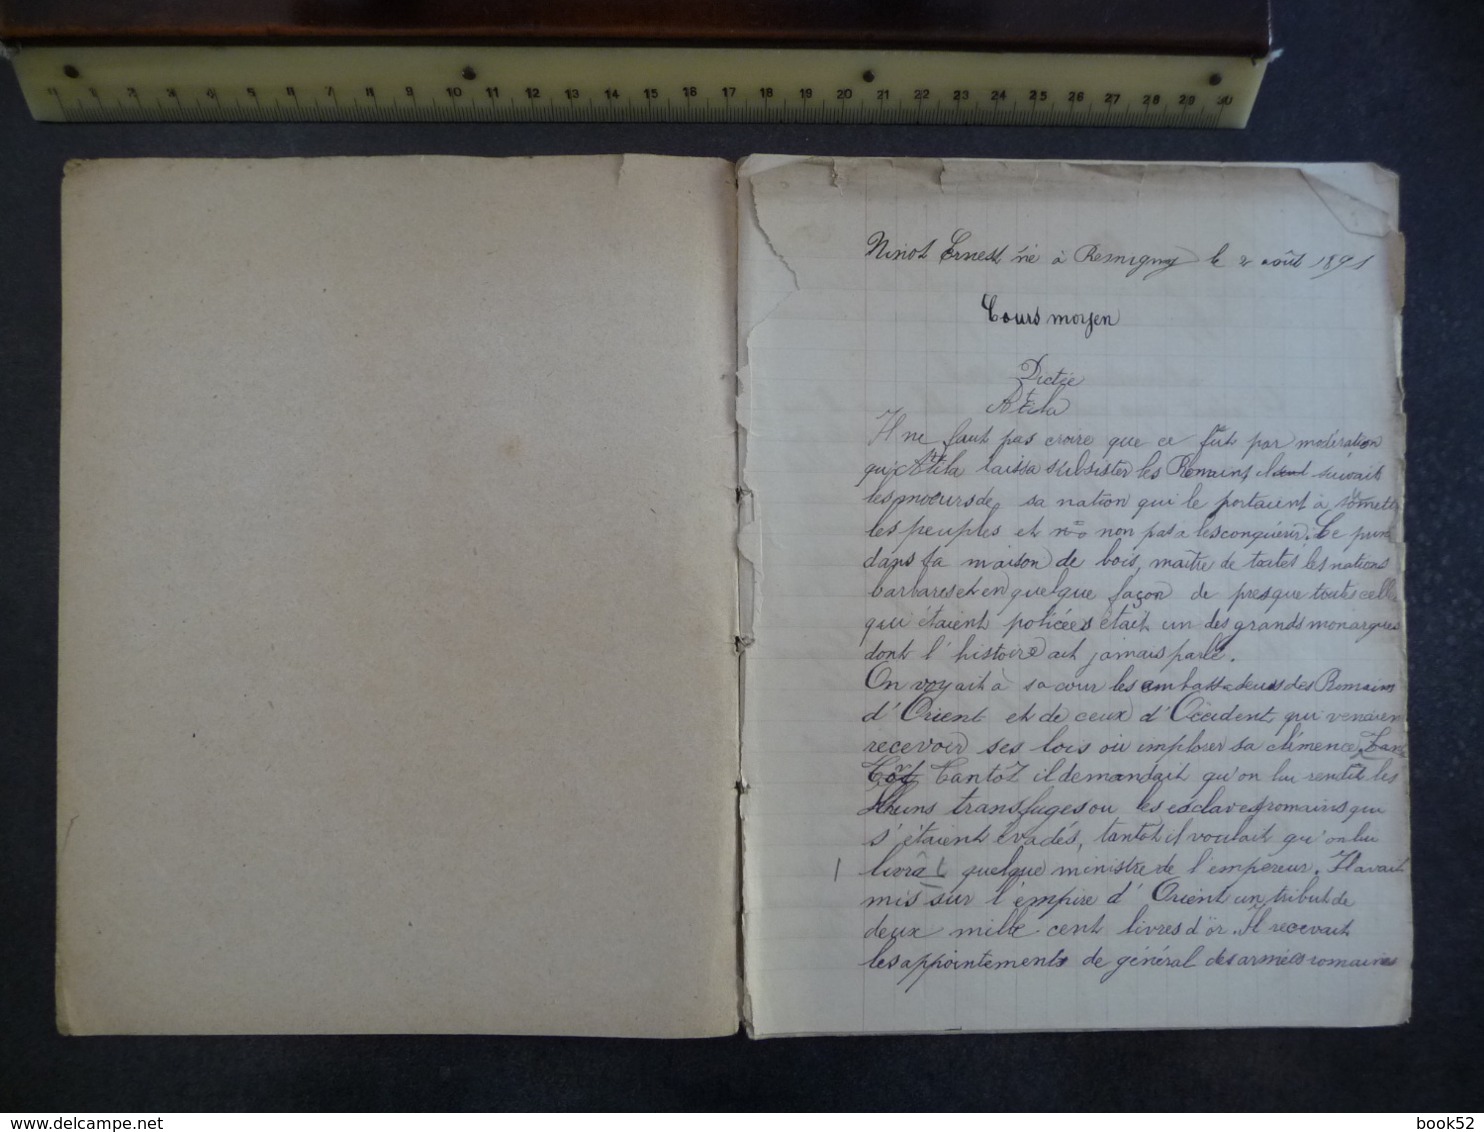 0 1 2 3 4 5 6 7 8 9 10 11 12 13 14 15 16 17 18 19 20 21 22 23 24 25 26 27 28 29 30
Ninot Ernest né à Remigny le 2 août 1891
Cours moyen
Dictée
Attila
Il ne faut pas croire que ce fût par modération
qu'Attila laissa subsister les Romains, il suivait
les moeurs de sa nation qui le portaient à
les peuples et non pas a les conquérir. Ce prince
dans sa maison de bois, maître de toutes les nations
barbares et en quelque façon de presque toutes celles
qui étaient policées était un des grands monarques
dont l'histoire ait jamais parlé.
On voyait à sa cour les ambassadeurs des Romains
d'Orient et de ceux d'Occident, qui venaient
recevoir ses lois où implorer sa clémence,
Tantot il demandait qu'on lui rendît les
Huns transfuges ou les esclaves romains qui
s'étaient évadés, tantôt il voulait qu'on lui
livrât quelque ministre de l'empereur. Il avait
mis sur l'empire d'Orient un tribut de
deux mille cent livres d'or. Il recevait
les appointements de général des armées romaines
delcampe.net
book52